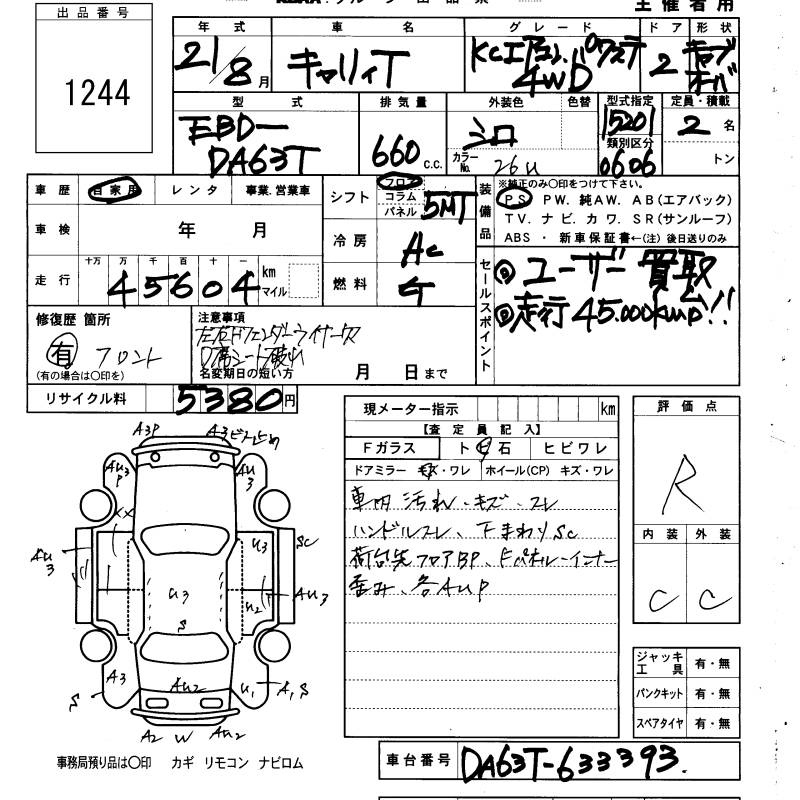 出品番号
1244
主催者用
年式 車名 グレード ドア 形状
21/8月 キャリィT KCエアコン.パワステ 4WD 2
型式 排気量 外装色 色替 型式指定 定員・積載
EBD-DA63T 660c.c. シロ 15201 2名
カラーNo. 26U 類別区分 0606 トン
車歴 自家用 レンタ 事業.営業車
シフト フロア コラム パネル 5MT
装備品 ※純正のみ○印をつけて下さい。
PS PW. 純AW. AB(エアバック)
TV. ナビ. カワ. SR(サンルーフ)
ABS ・ 新車保証書←(注)後日送りのみ
車検 年 月
冷房 AC
走行 十万 万 千 百 十 一 km マイル
45604
燃料
セールスポイント
◎ユーザー買取
◎走行45.000km!!
修復歴 箇所
有 フロント
(有の場合は○印を)
注意事項
名変期日の短い方 月 日まで
リサイクル料 5380円
現メーター指示 km
【査定員記入】
Fガラス ト 石 ヒビワレ
ドアミラー キズ・ワレ ホイール(CP) キズ・ワレ
車内汚れ、キズ・スレ
ハンドルスレ、下まわりSC
荷台先フロアBP、Fパネル-インナー
歪み、各AUP
評価点
R
内装 外装
C C
A3P A3ビス止め
AU3P AU3
XX
AU3 U3 SC
U3 U2 AU3
S
A3 AU2 U1 A1,S
S
A2 W AU2
ジャッキ工具 有・無
パンクキット 有・無
スペアタイヤ 有・無
事務局預り品は○印 カギ リモコン ナビロム
車台番号 DA63T-633393.